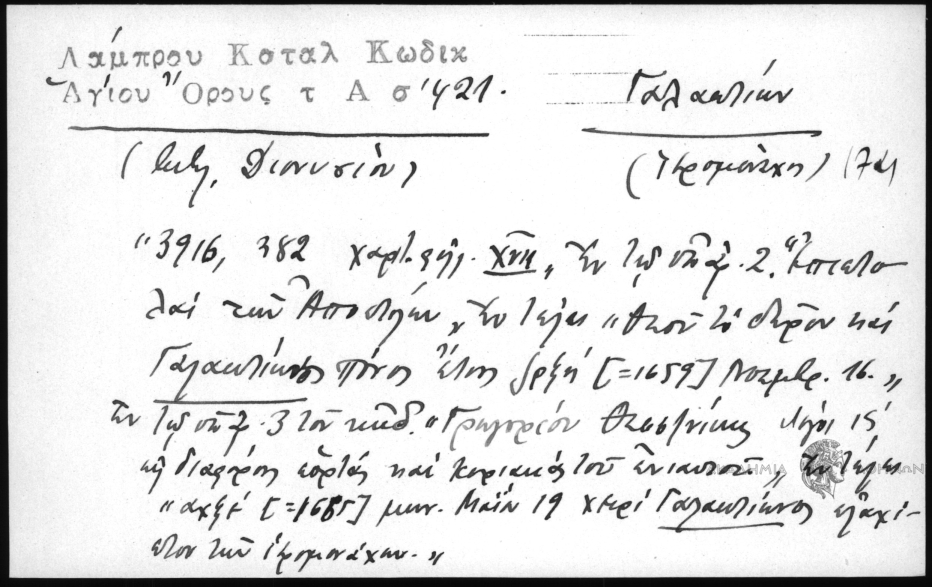 Λάμπρου Καταλ Κωδικ
Ἁγίου Ὄρους τ Α σ' 421.
Γαλακτίων
(Διονυσίου)
(Ἱερομόναχος)
"3916, 382 χαρτ. XVII „ Ἐν τῷ ὑπ' ἀρ. 2. "Ἐπιστο-
λαὶ τῶν Ἀποστόλων „ Ἐν τέλει "Θεοῦ τὸ δῶρον καὶ
Γαλακτίωνος πόνος ἔτους [=1659] Νοεμβρ. 16. „
Ἐν τῷ ὑπ' ἀρ. 3 τοῦ "Γρηγορίου Θεσ/νίκης λόγοι
εἰς διαφόρους ἑορτὰς καὶ κυριακὰς τοῦ ἐνιαυτοῦ „ Ἐν τέλει
"αχξε [=1665] μην. Μαΐῳ 19 χειρὶ Γαλακτίωνος ἐλαχί-
στου τῶν ἱερομονάχων. „